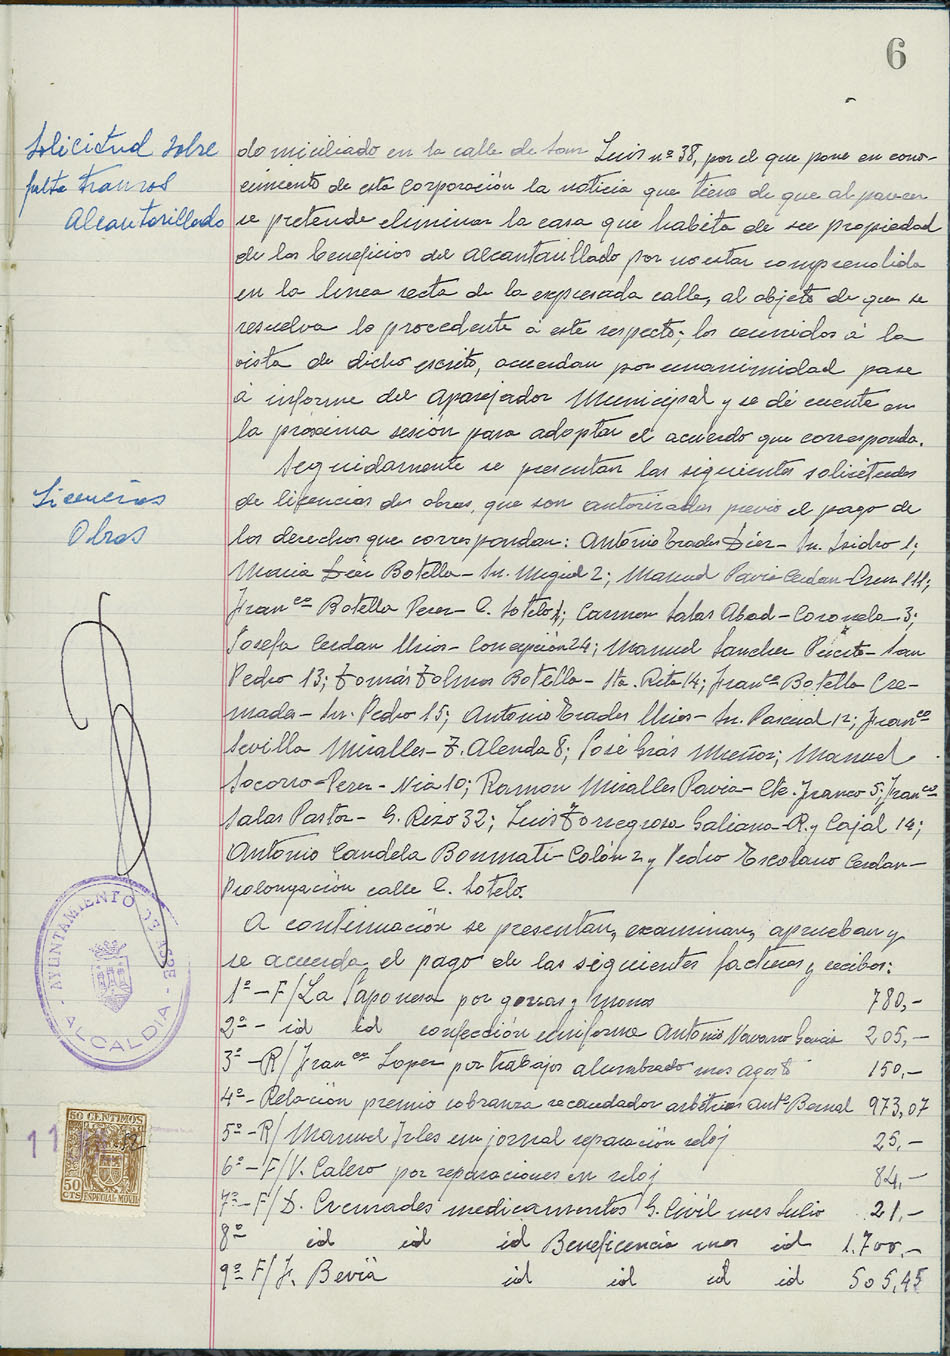 6
Solicitud sobre
falta trozos
Alcantarillado
domiciliado en la calle de San Luis nº 38, por el que pone en cono-
cimiento de esta Corporación la noticia que tiene de que al parecer
se pretende eliminar la casa que habita de su propiedad
de los beneficios del alcantarillado por no estar comprendida
en la linea recta de la expresada calle, al objeto de que se
resuelva lo procedente a este respecto; los reunidos á la
vista de dicho escrito, acuerdan por unanimidad pase
á informe del Aparejador Municipal y se dé cuenta en
la próxima sesión para adoptar el acuerdo que corresponda.
Licencias
Obras
Seguidamente se presentan las siguientes solicitudes
de licencias de obras, que son autorizadas previo el pago de
los derechos que correspondan: Antonio Prades Díez - Sn. Isidro 1;
Maria Díez Botella - Sn. Miguel 2; Manuel Pavia Cerdan - Cruz
Franco Botella Perez - C. Sotelo; Carmen Salas Abad - Coronela 3;
Josefa Cerdan Mira - Concepción 24; Manuel Sanchez - San
Pedro 13; Tomás Botella - Sta. Rita 14; Franco Botella Cre-
mades - Sn. Pedro 15; Antonio Prades Mira - Sn. Pascual 12; Franco
Sevilla Miralles - T. Alenda 8; José Grás Muñoz; Manuel
Socorro Perez - Nia 10; Ramon Miralles Pavia - Cte. Franco 5; Franco
Salas Pastor - G. Rizo 32; Luis Torregrosa Galiana - R. y Cajal 14;
Antonio Candela Bonmatí - Colón 2 y Pedro Escolano Cerdan -
Prolongación calle C. Sotelo.
A continuación se presentan, examinan, aprueban y
se acuerda el pago de las siguientes facturas y recibos:
1º - F/ La Saponesa por gorras y monos 780,-
2º - id id confección uniforme Antonio Navarro Garcia 205,-
3º - R/ Franco Lopez por trabajos alumbrado mes agosto 150,-
4º - Relación premio cobranza recaudador arbitrios Antº Bernal 973,07
5º - R/ Manuel Irles un jornal reparación reloj 25,-
6º - F/ V. Calero por reparaciones en reloj 84,-
7º - F/ D. Cremades medicamentos G. Civil mes Julio 21,-
8º id id id Beneficencia mes id 1.700,-
9º F/ J. Beviá id id id id 505,45
AYUNTAMIENTO DE ASPE
ALCALDIA
50 CENTIMOS
50
CTS ESPECIAL MOVIL